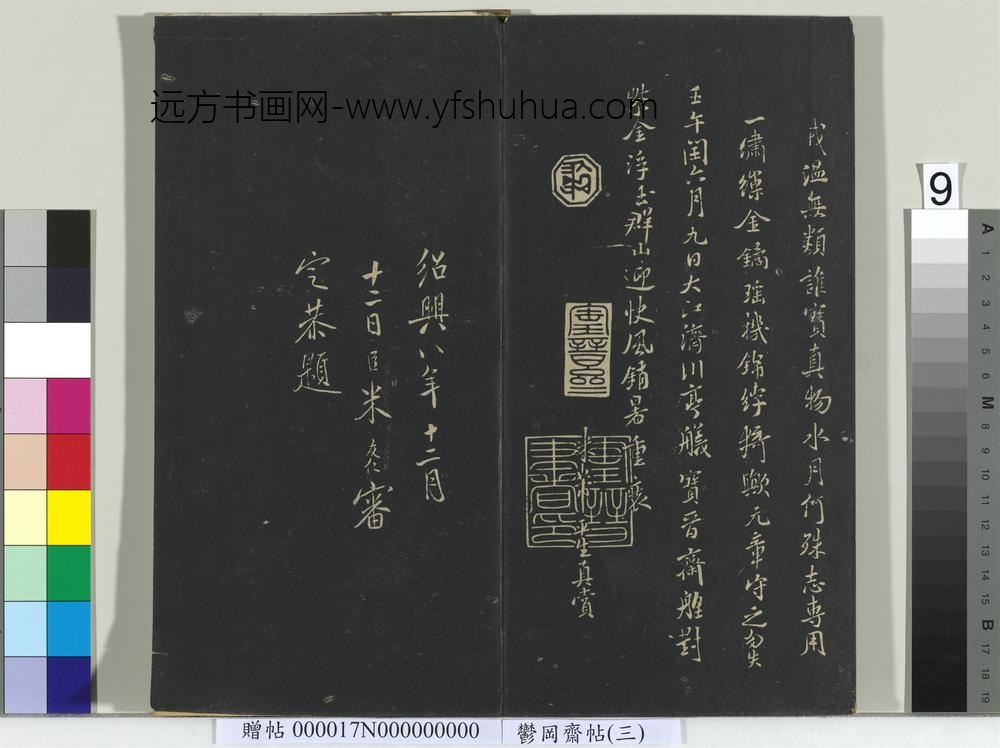 远方书画网-www.yfshuhua.com
戎溫無類誰寶真物水月何殊志專用
一繡繅金鐍瑤機錦綍猗歟元章守之勿失
壬午閏六月九日大江濟川亭艤寶晉齋艎對
紫金浮玉群山迎快風銷暑重裝
米芾平生真賞
紹興八年十二月
十二日臣米友仁審
定恭題
9
A 1 2 3 4 5 6 M 8 9 10 11 12 13 14 15 B 17 18 19
贈帖 000017N000000000
鬱岡齋帖(三)